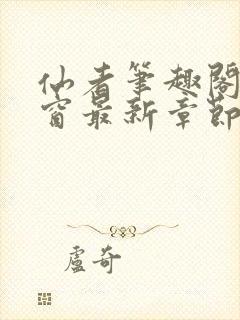 仙者筆趣閣
窗最新章節
盧奇